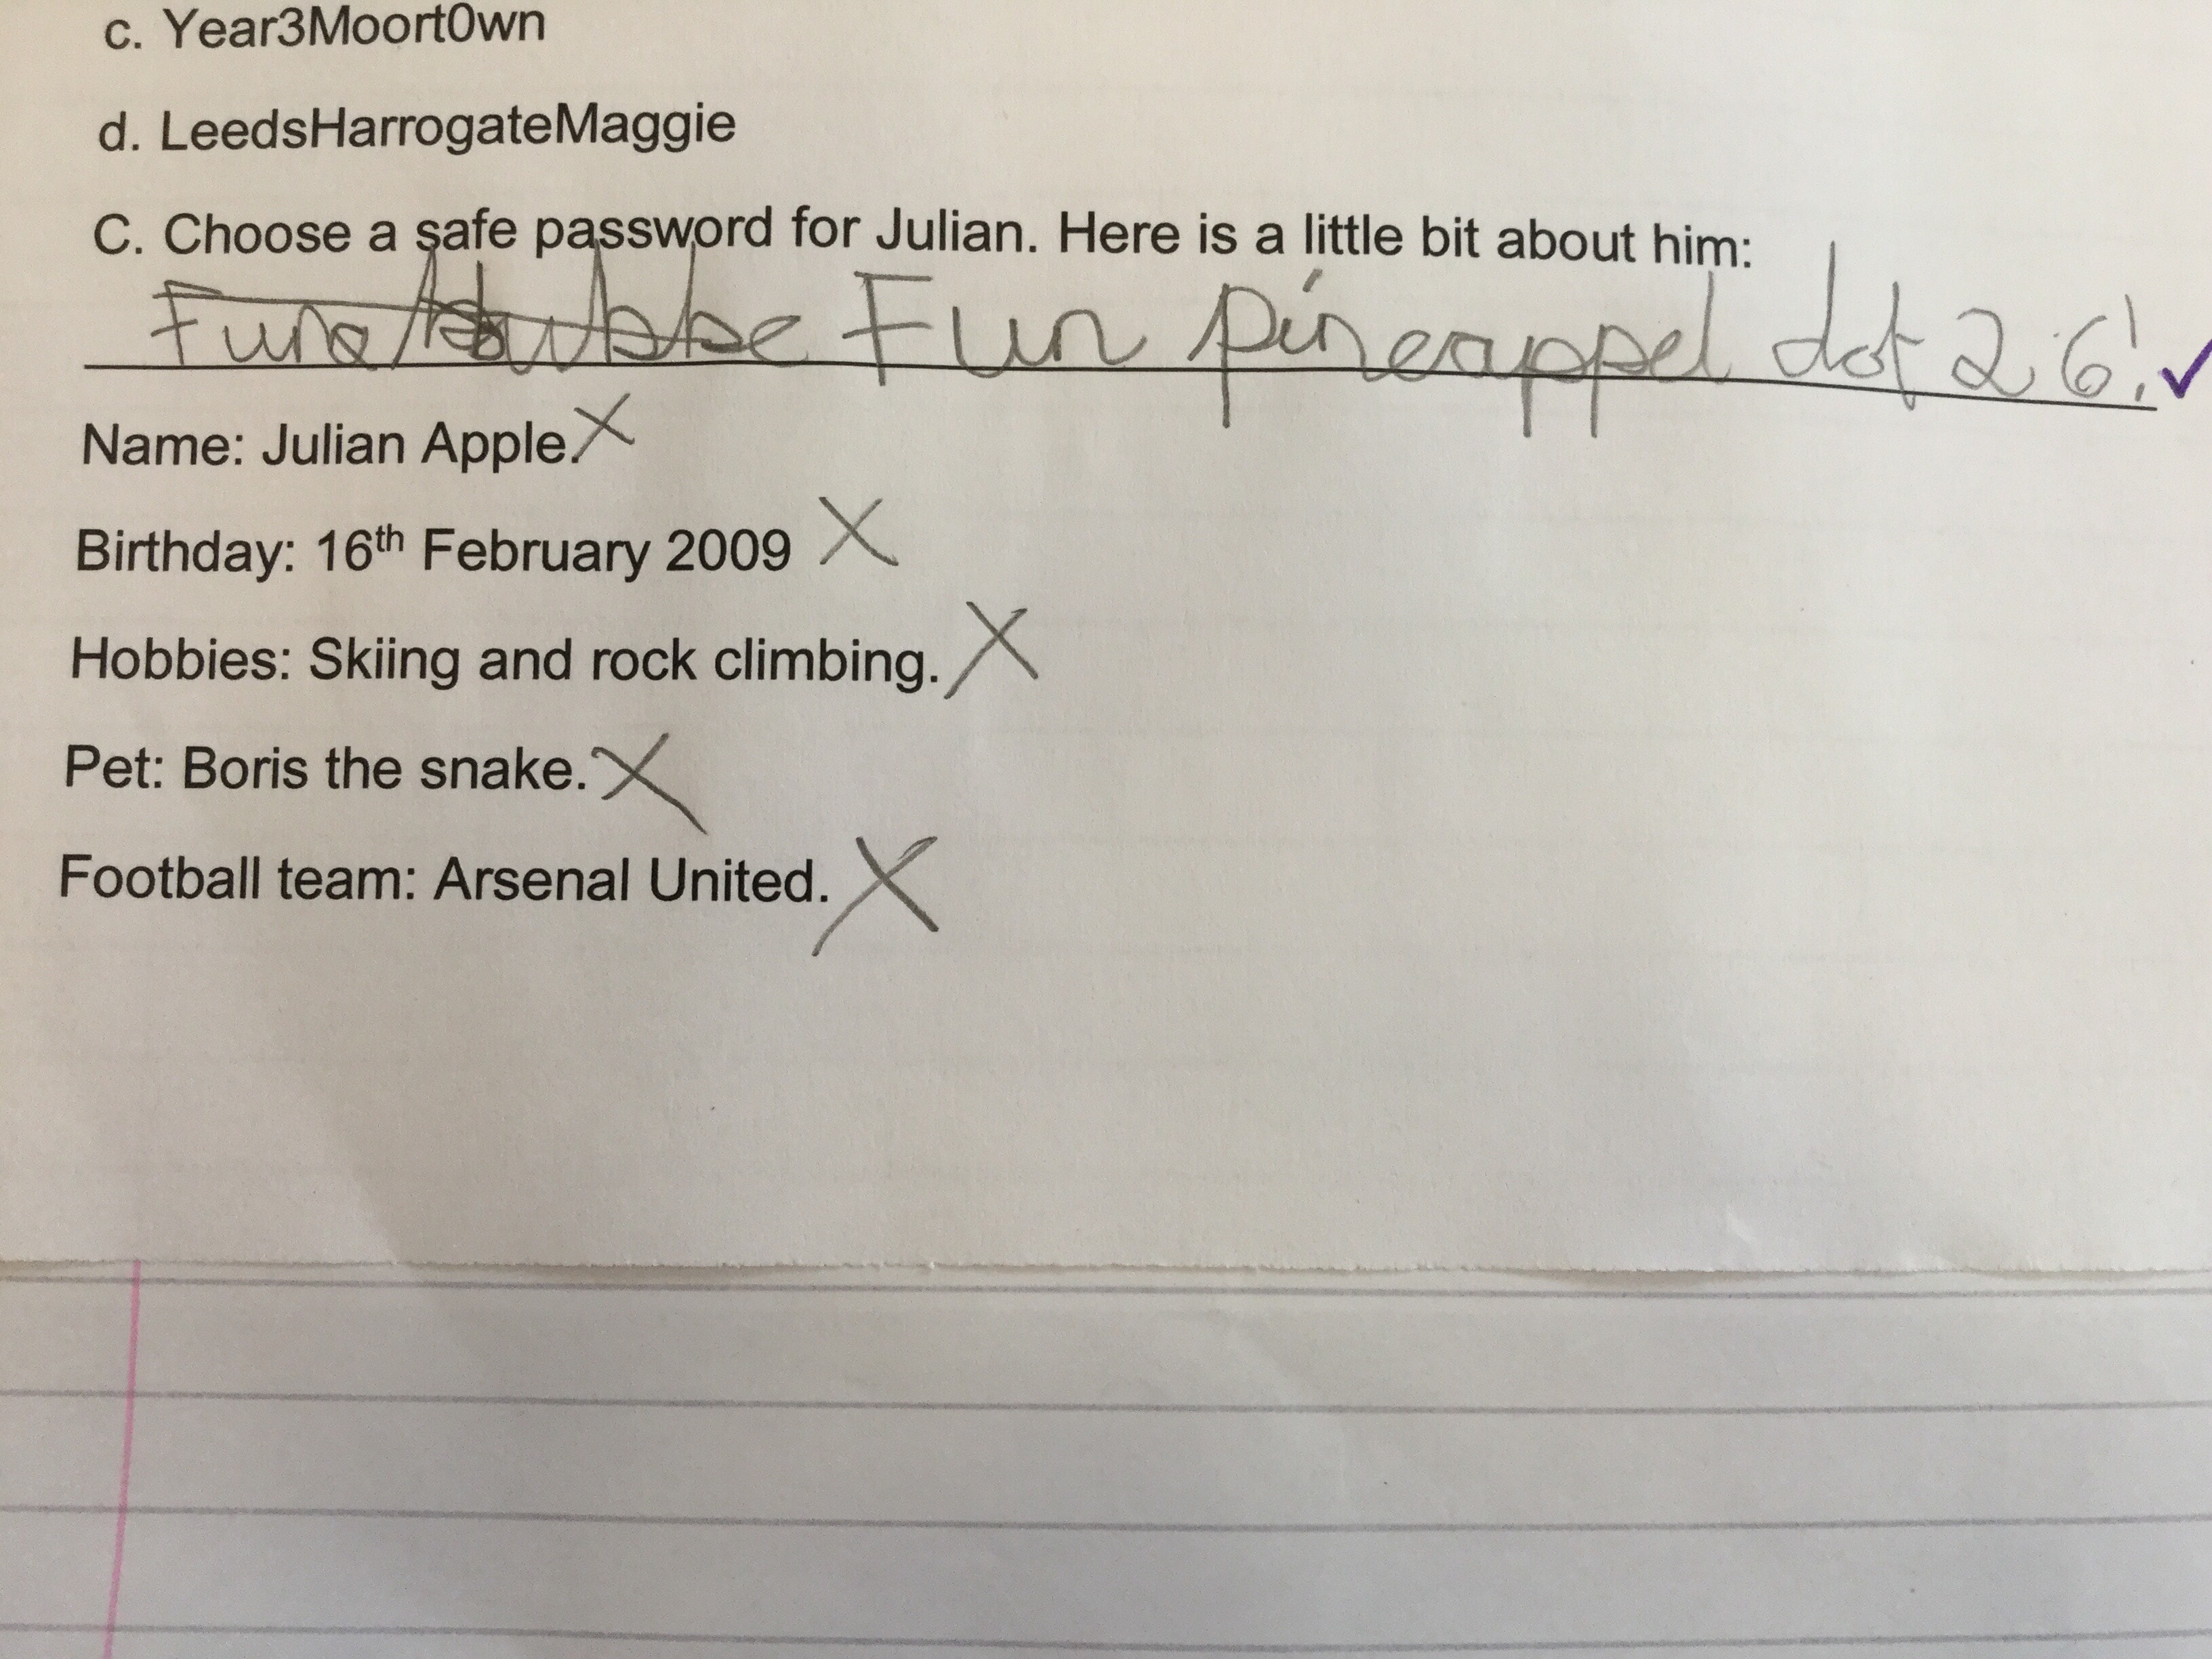 c. Year3Moort0wn
d. LeedsHarrogateMaggie
C. Choose a safe password for Julian. Here is a little bit about him:
Fun pineappel dot 26!
Name: Julian Apple.
Birthday: 16th February 2009
Hobbies: Skiing and rock climbing.
Pet: Boris the snake.
Football team: Arsenal United.